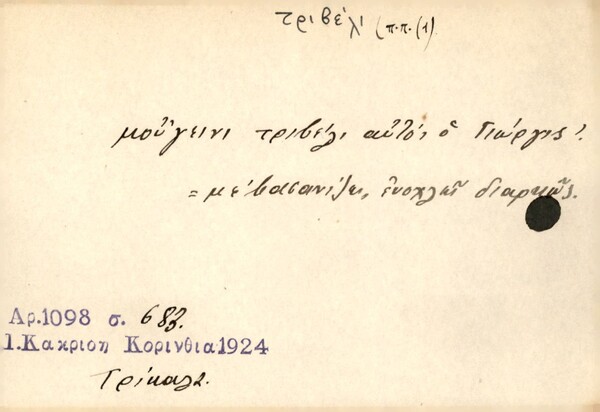 τριβέλι (π.π. (1).
μοὔγεινι τριβέλι αὐτός ὁ Γιώργις!
= μέ βασανίζει, ἐνοχλεῖ διαρκῶς.
Αρ.1098 σ. 683.
Ι.Κακριση Κορινθια1924
Τρίκαλα.